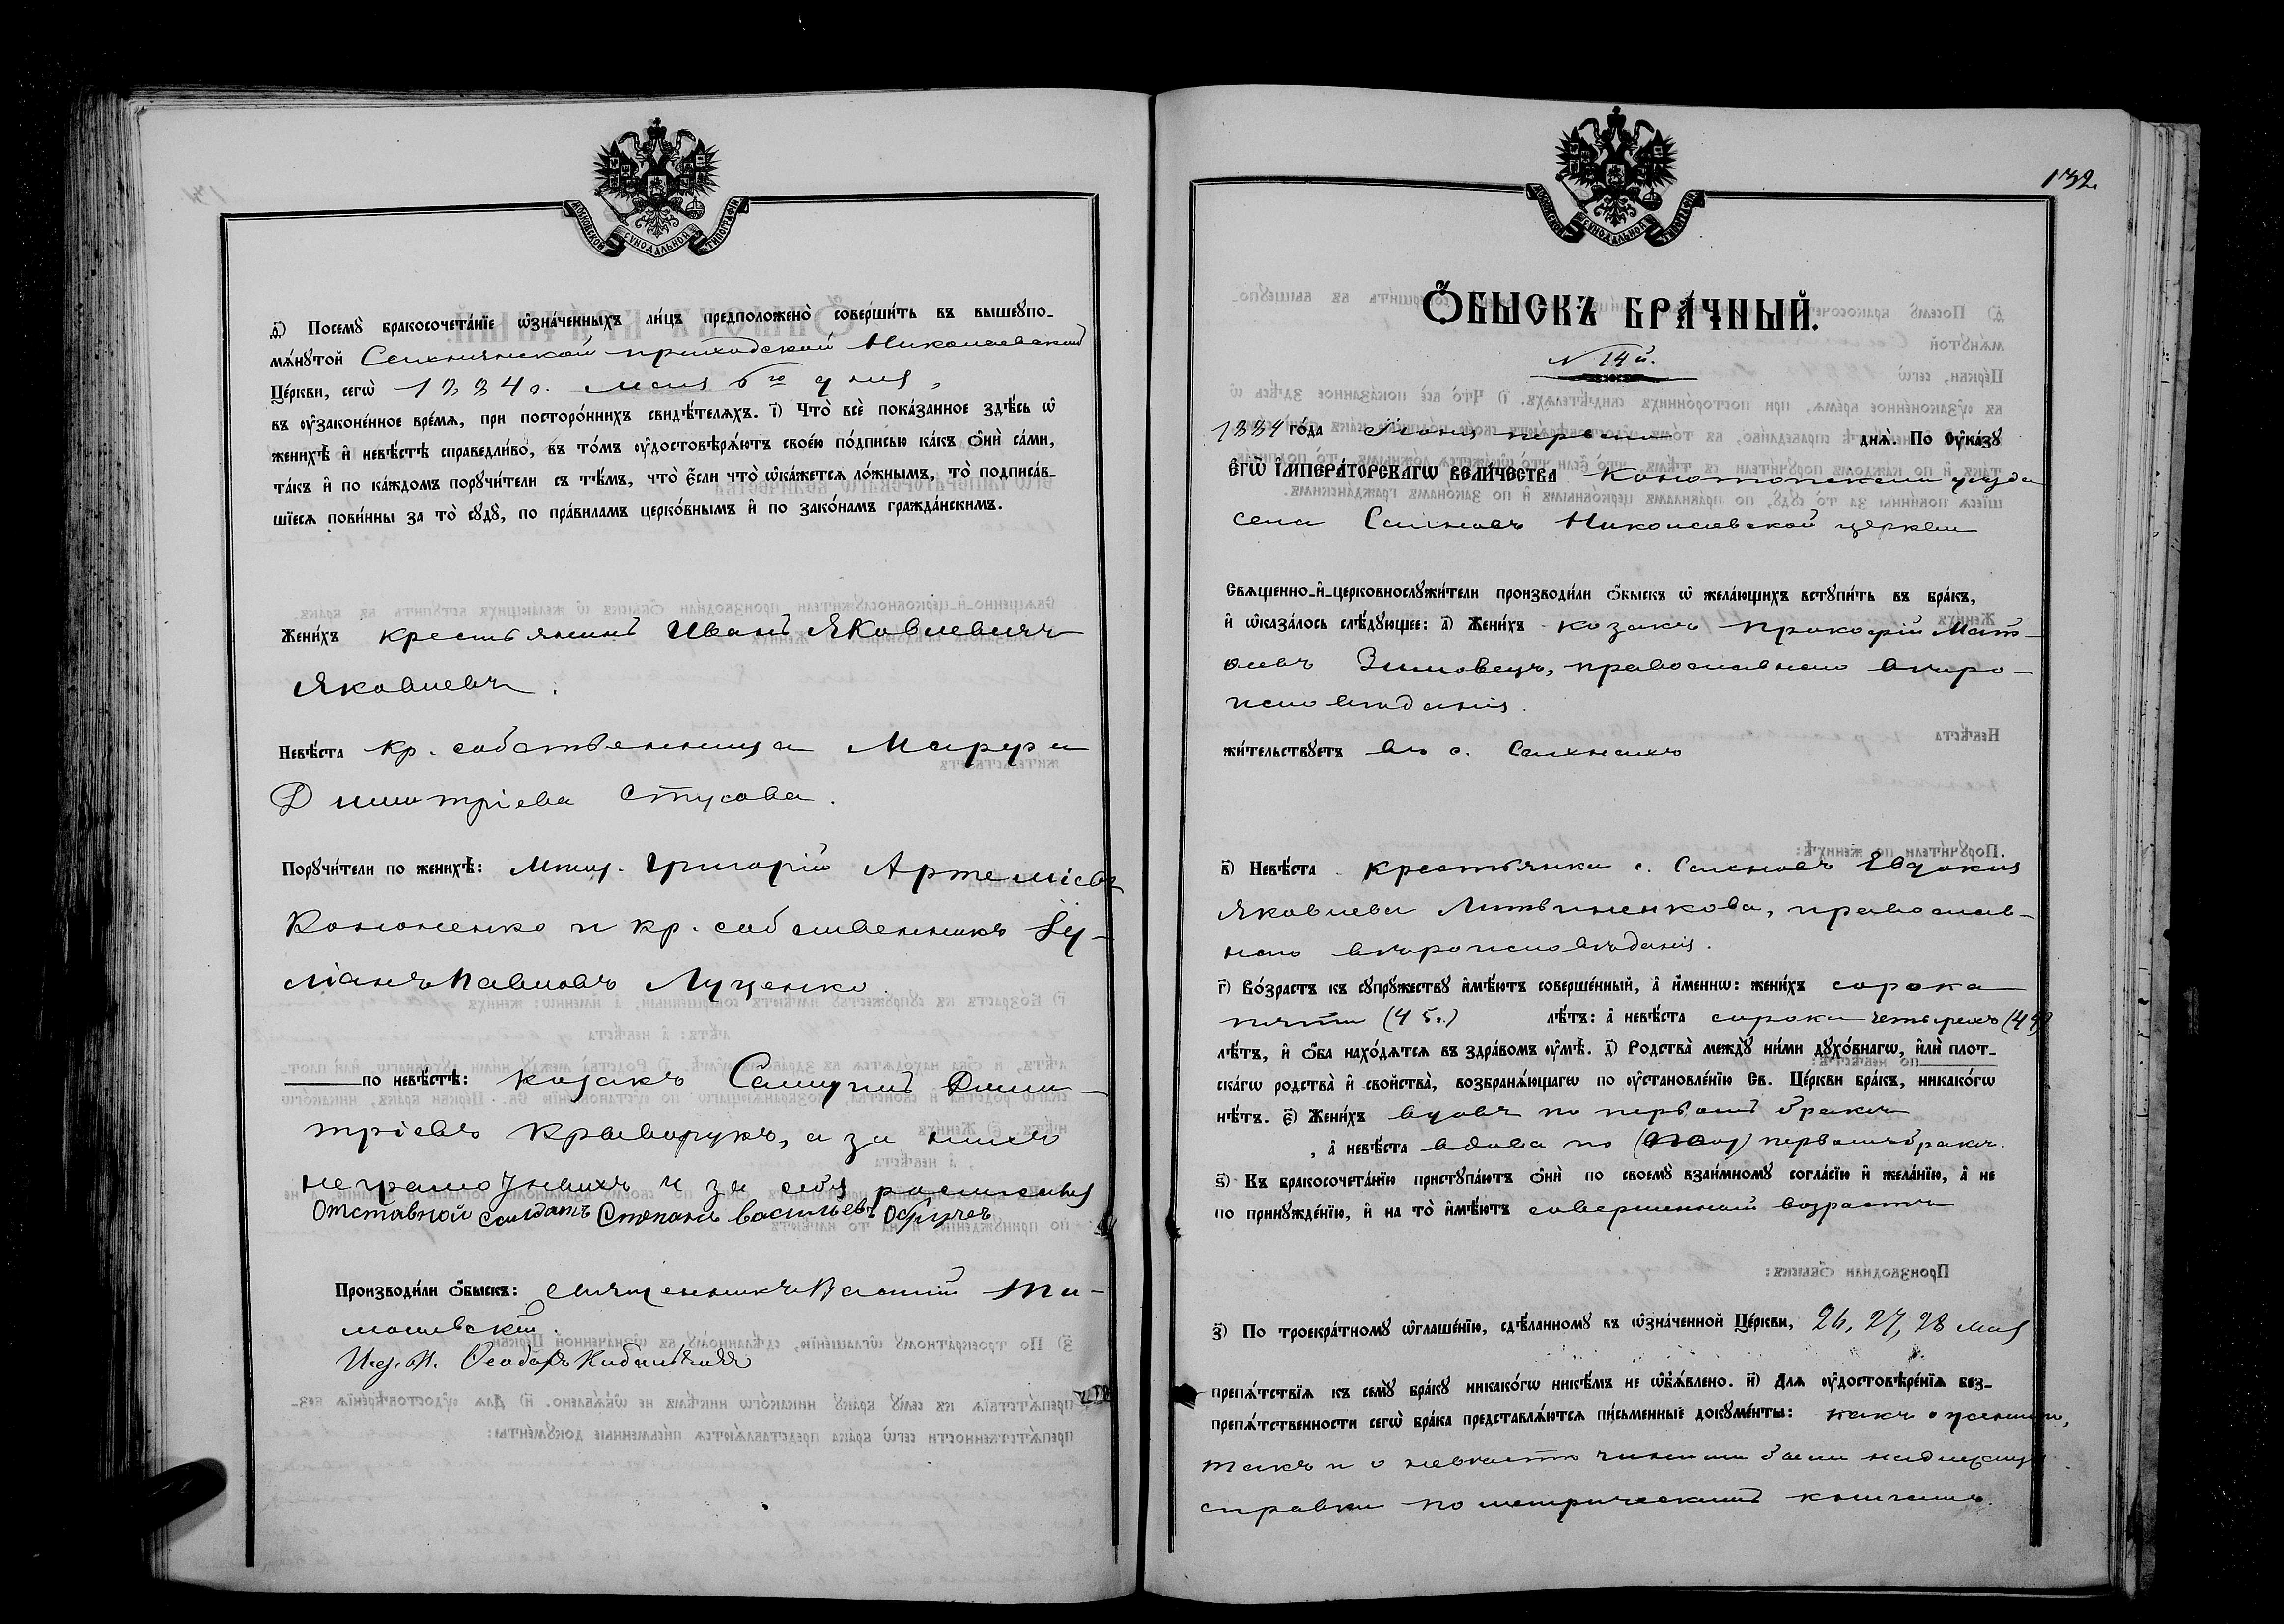 МОСКОВСКОЙ СѴНОДАЛЬНОЙ ТИПОГРАФІИ
д҃і) Посемꙋ̀ бракосочета́нїе ѡ҆зна́ченныхъ ли́цъ предположено̀ соверши́ть въ вышеꙋпо-
мѧ́нꙋтой Сахнянской приходской Николаевской
Це́ркви, сегѡ̀ 1884 г. мая 6го дня,
въ ᲂу҆законе́нное вре́мѧ, при посторо́ннихъ свидѣ́телѧхъ. і҃) Что̀ всѐ пока́занное здѣ́сь ѡ҆
женихѣ̀ и҆ невѣ́стѣ справедли́во, въ то́мъ ᲂу҆достовѣрѧ́ютъ свое́ю по́дписью ка́къ ѻ҆нѝ са́ми,
та́къ и҆ по ка́ждомъ порꙋчи́тели съ тѣ́мъ, что̀ є҆́сли что̀ ѡ҆ка́жетсѧ ло́жнымъ, то̀ подписа́в-
шїесѧ пови́нны за то̀ сꙋдꙋ̀, по пра́виламъ церко́внымъ и҆ по зако́намъ гражда́нскимъ.
Жени́хъ крестьянинъ Иванъ Яковлевичъ
Яковлевъ.
Невѣ́ста кр. собственница Марфа
Димитріева Стусова.
Порꙋчи́тели по женихѣ̀: Григорій Артеміевъ
Кононенко и кр. собственникъ
Павловъ Луценко.
по невѣ́стѣ: козакъ Самуилъ Дими-
тріевъ Криворукъ, а за нихъ
неграмотныхъ и за себя росписался
Отставной солдатъ Степанъ васильевъ
Производи́ли ѻ҆́быскъ: Священникъ Василій
Ѳеодоръ
132.
МОСКОВСКОЙ СѴНОДАЛЬНОЙ ТИПОГРАФІИ
Ѻ҆́БЫСКЪ БРА́ЧНЫЙ.
N 14й.
1884 го́да Іюня перваго днѧ̀. По Оу҆ка́зꙋ
Є҆ГѠ̀ И҆МПЕРА́ТОРСКАГѠ ВЕЛИ́ЧЕСТВА Конотопскаго уѣзда
села Сахновъ Николаевской церкви
Свѧще́нно-и҆-церковнослꙋжи́тели производи́ли ѻ҆́быскъ ѡ҆ жела́ющихъ встꙋпи́ть въ бра́къ,
и҆ ѡ҆каза́лось слѣ́дꙋющее: а҃) Жени́хъ козакъ Прокофій Мат-
ѳіевъ Зимовецъ, православнаго вѣро-
исповѣданія.
жи́тельствꙋетъ въ с. Сахнахъ
в҃) Невѣ́ста крестьянка с. Сахновъ Евдокія
Яковлева Литвиненкова, православ-
наго вѣроисповѣданія.
г҃) Во́зрастъ къ сꙋпрꙋ́жествꙋ и҆мѣ́ютъ соверше́нный, а҆ и҆́меннѡ: жени́хъ сорока
пяти (45 г.) лѣ́тъ: а҆ невѣ́ста сорока четырехъ (44)
лѣ́тъ, и҆ ѻ҆́ба нахо́дѧтсѧ въ здра́вомъ ᲂу҆мѣ̀. д҃) Родства̀ междꙋ̀ ни́ми дꙋхо́внагѡ, и҆лѝ плот-
ска́гѡ родства̀ и҆ свойства̀, возбранѧ́ющагѡ по ᲂу҆становле́нїю Св. Це́ркви бра́къ, никако́гѡ
нѣ́тъ. є҃) Жени́хъ вдовъ по первомъ бракѣ
, а҆ невѣ́ста вдова по первомъ бракѣ.
ѕ҃) Къ бракосочета́нїю пристꙋпа́ютъ ѻ҆нѝ по своемꙋ̀ взаи́мномꙋ согла́сїю и҆ жела́нїю, а҆ не
по принꙋжде́нїю, и҆ на то̀ и҆мѣ́ютъ совершенный возрастъ
з҃) По троекра́тномꙋ ѡ҆глаше́нїю, сдѣ́ланномꙋ въ ѡ҆зна́ченной Це́ркви, 26, 27, 28 мая
препѧ́тствїѧ къ семꙋ̀ бра́кꙋ никако́гѡ никѣ́мъ не ѡ҆б̾ѧ́влено. и҃) Длѧ ᲂу҆достовѣре́нїѧ без-
препѧ́тственности сегѡ̀ бра́ка представлѧ́ютсѧ пи́сьменные докꙋме́нты: какъ о женихѣ,
такъ и о невѣстѣ чинимы были надлежащія
справки по метрическимъ книгамъ.